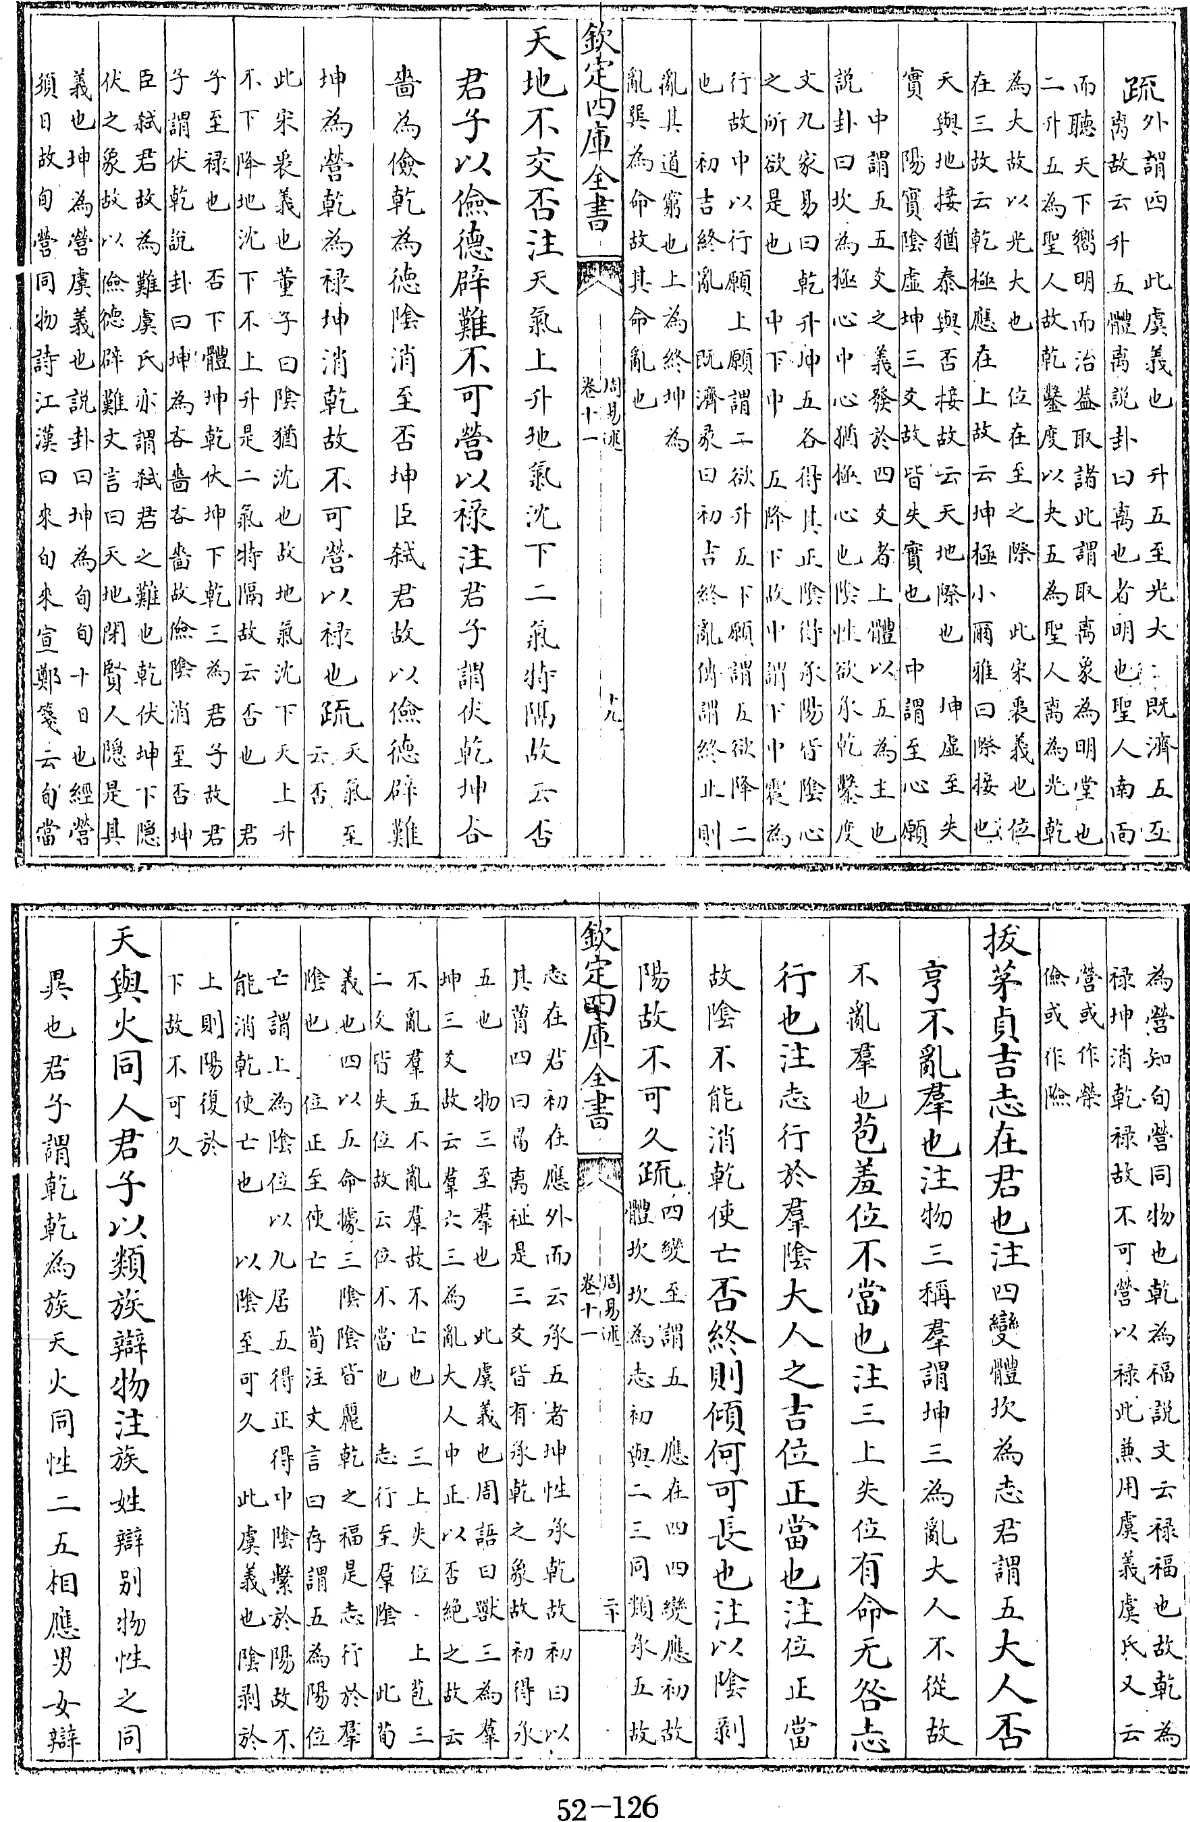 疏
外謂四　此虞義也　升五至光大　既濟五互
离故云升五體离說卦曰离也者明也聖人南面
而聽天下嚮明而治葢取諸此謂取离象為明堂也
二升五為聖人故乾鑿度以夬五為聖人离為光乾
為大故以光大也　位在至之際　此宋衷義也位
在三故云乾極應在上故云坤極小爾雅曰際接也
天與地接猶泰與否接故云天地際也　坤虛至失
實　陽實陰虛坤三爻故皆失實也　中謂至心願
中謂五五爻之義發於四爻者上體以五為主也
說卦曰坎為極心中心猶極心也陰性欲承乾鑿度
文九家易曰乾升坤五各得其正陰得承陽皆陰心
之所欲是也　中下中　五降下故中謂下中震為
行故中以行願上願謂二欲升五下願謂五欲降二
也　初吉終亂　既濟彖曰初吉終亂傳謂終止則
亂其道窮也上為終坤為
亂巽為命故其命亂也
欽定四庫全書
周易述
卷十一
十九
天地不交否注天氣上升地氣沈下二氣特隔故云否
君子以儉德辟難不可營以祿注君子謂伏乾坤吝
嗇為儉乾為德陰消至否坤臣弑君故以儉德辟難
坤為營乾為祿坤消乾故不可營以祿也疏
天氣至
云否
此宋衷義也董子曰陰猶沈也故地氣沈下天上升
不下降地沈下不上升是二氣特隔故云否也　君
子至祿也　否下體坤乾伏坤下乾三為君子故君
子謂伏乾說卦曰坤為吝嗇吝嗇故儉陰消至否坤
臣弑君故為難虞氏亦謂弑君之難也乾伏坤下隠
伏之象故以儉德辟難文言曰天地閉賢人隠是其
義也坤為營虞義也說卦曰坤為旬旬十日也經營
須日故旬營同物詩江漢曰來旬來宣鄭箋云旬當
為營知旬營同物也乾為福說文云祿福也故乾為
祿坤消乾祿故不可營以祿此兼用虞義虞氏又云
營或作榮
儉或作險
拔茅貞吉志在君也注四變體坎為志君謂五大人否
亨不亂羣也注物三稱羣謂坤三為亂大人不從故
不亂羣也苞羞位不當也注三上失位有命无咎志
行也注志行於羣陰大人之吉位正當也注位正當
故陰不能消乾使亡否終則傾何可長也注以陰剥
陽故不可久疏
四變至謂五　應在四四變應初故
體坎坎為志初與二三同類承五故
志在君初在應外而云承五者坤性承乾故初曰以
其蕳四曰疇离祉是三爻皆有承乾之象故初得承
五也　物三至羣也　此虞義也周語曰獸三為羣
坤三爻故云羣六三為亂大人中正以否絶之故云
不亂羣五不亂羣故不亡也　三上失位　上苞三
二爻皆失位故云位不當也　志行至羣陰　此荀
義也四以五命據三陰陰皆麗乾之福是志行於羣
陰也　位正至使亡　荀注文言曰存謂五為陽位
亡謂上為陰位以九居五得正得中陰繫於陽故不
能消乾使亡也　以陰至可久　此虞義也陰剥於
上則陽復於
下故不可久
欽定四庫全書
周易述
卷十一
二十
天與火同人君子以類族辯物注族姓辯別物性之同
異也君子謂乾乾為族天火同性二五相應男女辯
52-126